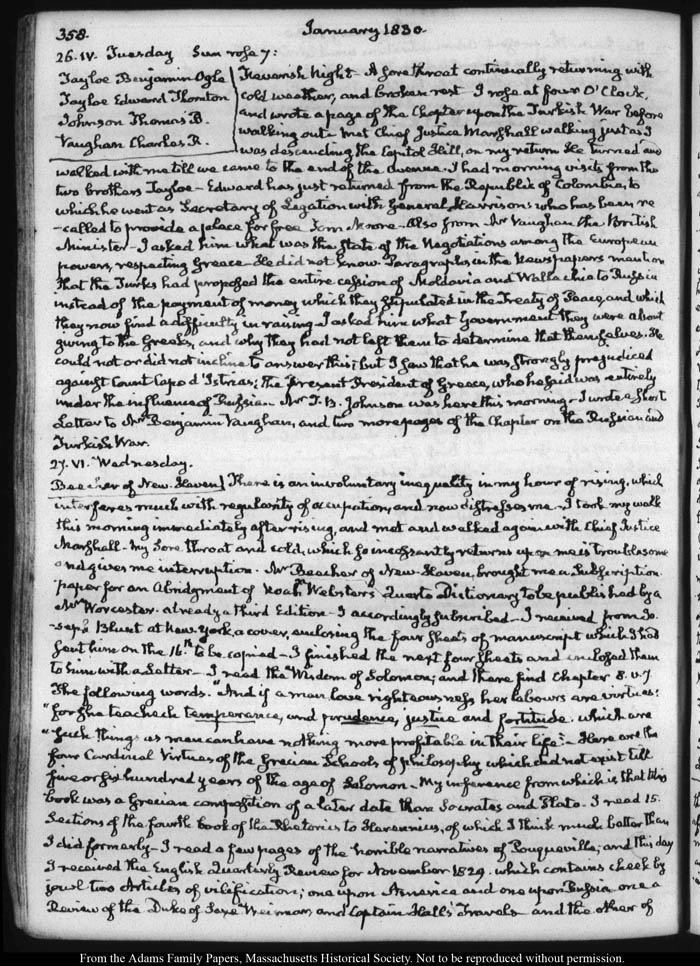 358.
January 1830.
26. IV. Tuesday Sun rose 7:
Tayloe Benjamin Ogle
Tayloe Edward Thornton
Johnson Thomas B.
Vaughan Charles R.
Feverish Night. A sore throat continually returning with
cold weather, and broken rest. I rose at four O'Clock,
and wrote a page of the Chapter upon the Turkish War before
walking out. Met Chief Justice Marshall walking just as I
was descending the Capitol Hill, on my return. He turned and
walked with me till we came to the end of the Avenue. I had morning visits from the
two brothers Tayloe — Edward has just returned from the Republic of Colombia, to
which he went as Secretary of Legation with General Harrison who has been re
-called to provide a place for Tom Moore. Also from Mr Vaughan the British
Minister — I asked him what was the State of the Negotiations among the European
powers, respecting Greece — He did not know. Paragraphs in the Newspapers mention
that the Turks had proposed the entire cession of Moldavia and Wallachia to Russia
instead of the payment of money which they stipulated in the Treaty of Peace, and which
they now find a difficulty in raising — I asked him what Government they were about
giving to the Greeks, and why they had not left them to determine that themselves. He
could not or did not incline to answer this; but I saw that he was strongly prejudiced
against Count Capo d'Istrias; the present President of Greece, who he said was entirely
under the influence of Russia. Mr T. B. Johnson was here this morning — I wrote a short
Letter to Mr Benjamin Vaughan, and two more pages of the Chapter on the Russian and
Turkish War.
27. VI. Wednesday.
Beecher of New-Haven There is an involuntary inequality in my hour of rising, which
interferes much with regularity of occupation, and now distresses me — I took my walk
this morning immediately after rising, and met and walked again with Chief Justice
Marshall — My sore throat and cold, which so incessantly returns upon me is troublesome
and gives me interruption. Mr Beecher of New-Haven, brought me a Subscription
paper for an Abridgment of Noah Webster's Quarto Dictionary to be published by a
Mr Worcester. already a third Edition — I accordingly subscribed — I received from Jo-
seph Blunt at New-York, a cover, enclosing the four sheets of manuscript which I had
sent him on the 16.th to be copied — I finished the next four sheets and enclosed them
to him with a Letter — I read the Wisdom of Solomon; and there find Chapter 8. v. 7.
The following words. "And if a man love righteousness her labours are virtues:
"for she teacheth temperance, and prudence, justice and fortitude. which are
"such things as men can have nothing more profitable in their life" — Here are the
four Cardinal Virtues of the Grecian Schools of philosophy which did not exist till
five or six hundred years of the age of Solomon — My inference from which is that this
book was a Grecian composition of a later date than Socrates and Plato. I read 15.
Sections of the fourth book of the Rhetorics to Herennius, of which I think much better than
I did formerly — I read a few pages of the horrible narratives of Pouqueville; and this day
I received the English Quarterly Review for November 1829. which contains cheek by
jowl two Articles of vilification; one upon America and one upon Russia one a
Review of the Duke of Saxe Weimar, and Captain Hall's Travels and the other of
From the Adams Family Papers, Massachusetts Historical Society. Not to be reproduced without permission.